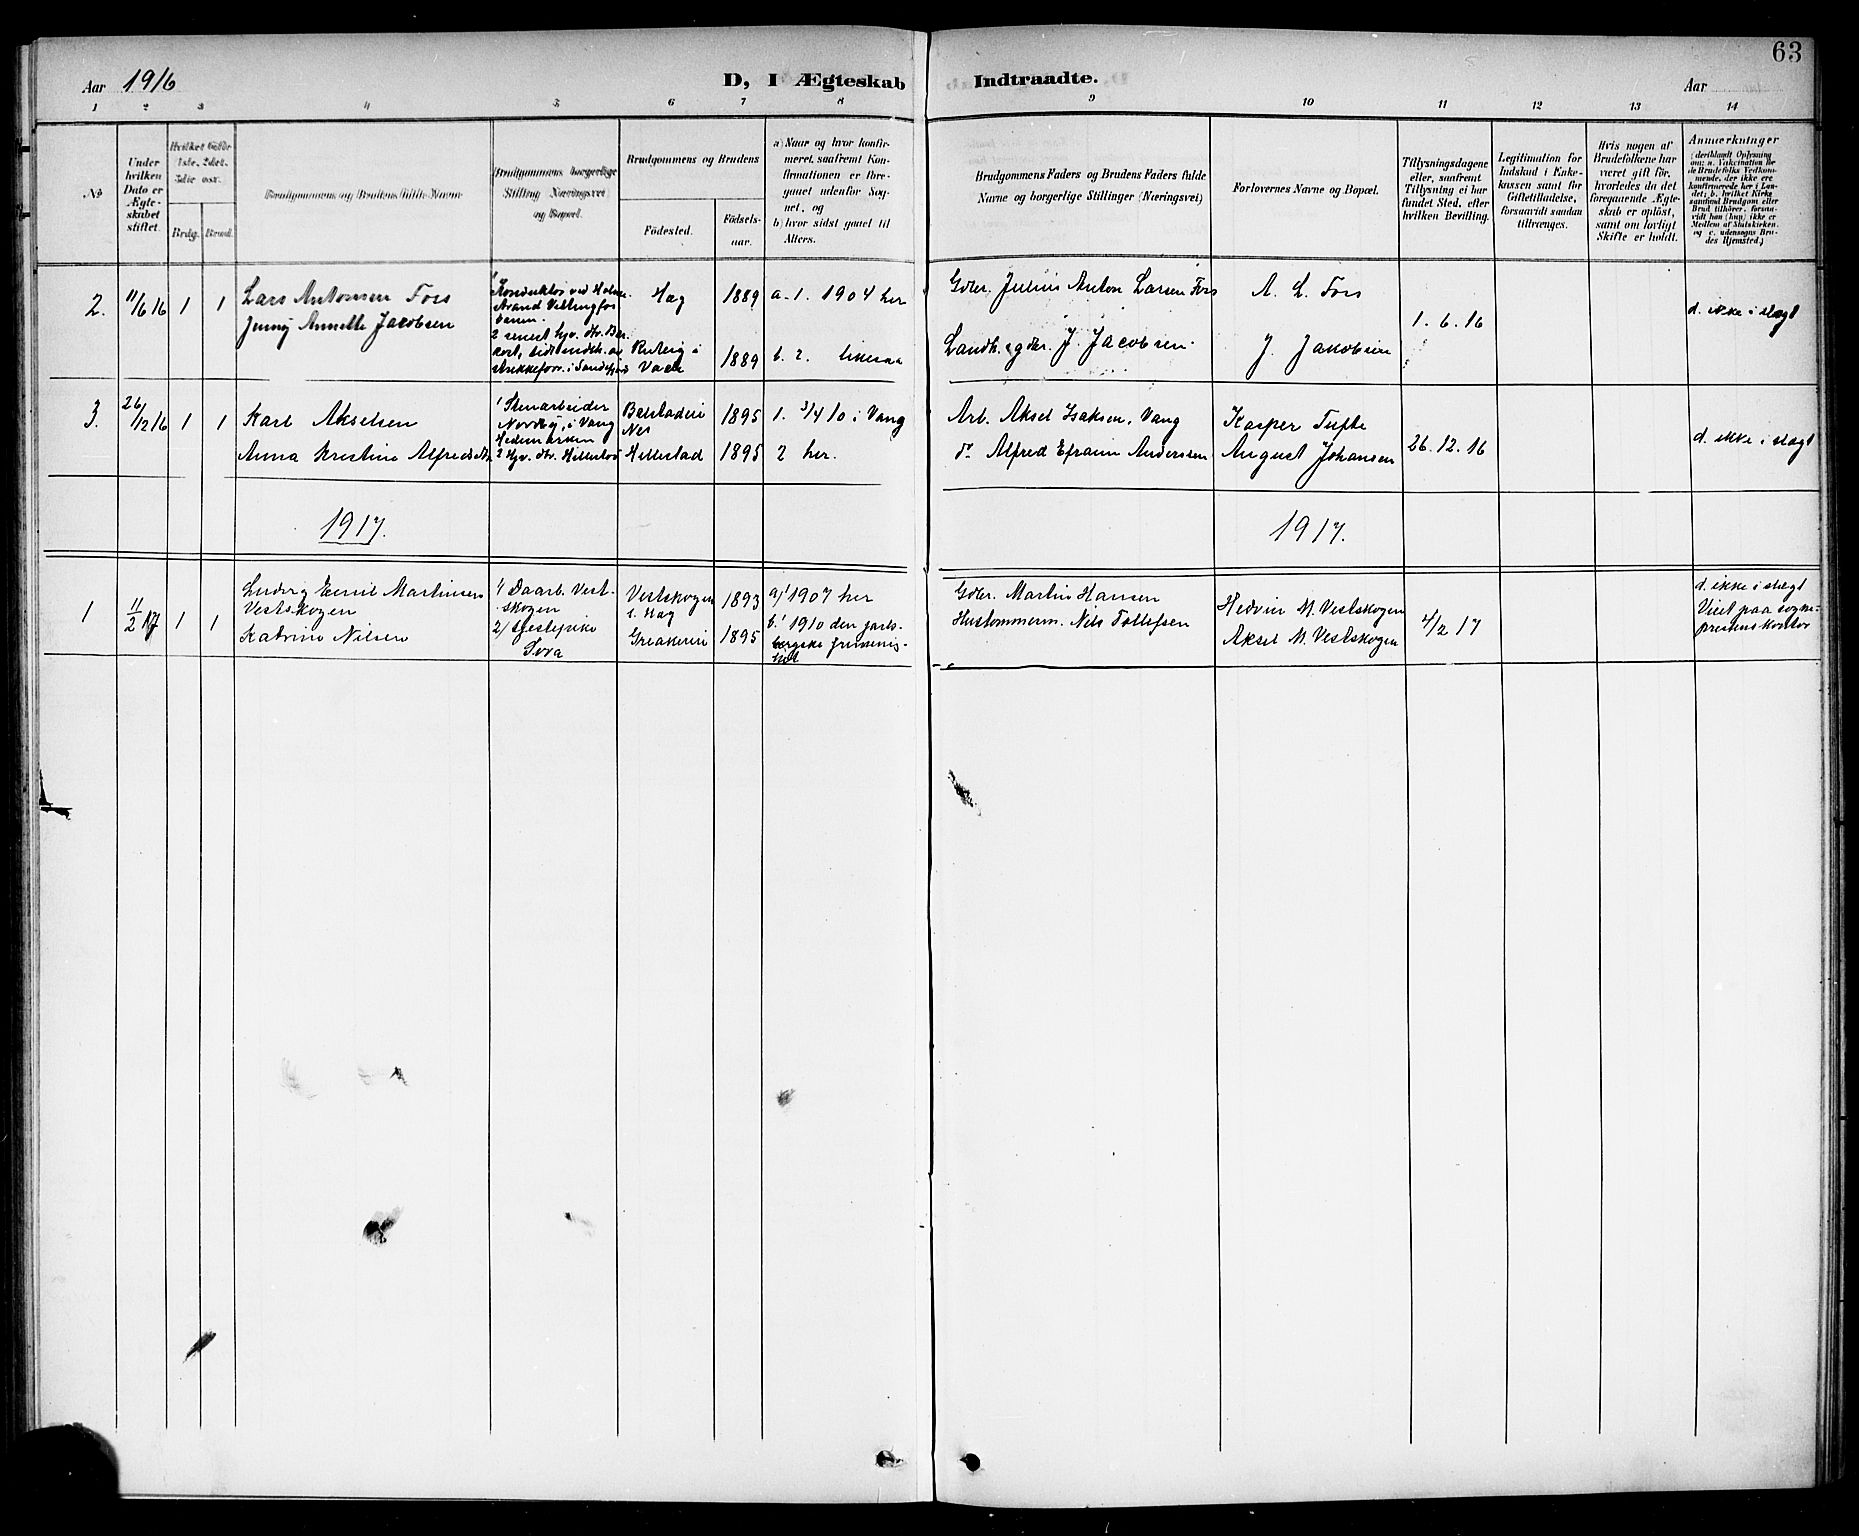 63
Aar 1916
D, I Ægteskab Indtraadte.
Aar
1 2 3 4 5 6 7 8 9 10 11 12 13 14
No
Under hvilken Dato er Ægteskabet stiftet.
Brdg. Brud.
Brudgommens og Brudens fulde Navne
Brudgommens borgerlige Stilling (Næringsvei) og Bopæl.
Brudgommens og Brudens
Födested.
Födselsaar.
a) Naar og hvor konfirmeret, saafremt Konfirmationen er foregaaet udenfor Sognet, og
b) hvor sidst gaaet til Alters.
Brudgommens Faders og Brudens Faders fulde Navne og borgerlige Stillinger (Næringsvei)
Forlovernes Navne og Bopæl.
Tillysningsdagene eller, saafremt Tillysning ei har fundet Sted, efter hvilken Bevilling.
Legitimation for Indskud i Enkekassen samt for Giftetilladelse, forsaavidt saadan tiltrænges.
Hvis nogen af Brudefolkene har været gift för, hvorledes da det foregaaende Ægteskab er oplöst, samt om lovligt Skifte er holdt.
Anmærkninger
2. 11/6 16 1 1
Lars Antonsen Fors
Jenny Annette Jacobsen
Hag 1889 a. 1. 1904 her
i Vaale 1889 b. 2. likesaa
Gdbr. Julius Anton Larsen Fors
Landh. og gdbr. J. Jacobsen.
A. L. Fors
J. Jakobsen
1. 6. 16
d. ikke i slægt
3. 26/12 16 1 1
Karl Akselsen
Anna Kristine
1 Stenarbeider
i Vang
Hedemarken
Nes 1895 1. 3/4 10 i Vang
Hillestad 1895 2 her.
Arb. Aksel Isaksen, Vang
do Alfred Efraim Anderssen
Kasper Tufte
August Johansen
26. 12. 16
d. ikke i slægt
1917. 1917.
1 11/2 17 1 1
Ludvig Emil Martinsen
Vestskogen
Katrine Nilsen
1/ Daarb. Vestskogen
Vestskogen
i. Hag 1893 a/1 1907 her
1895 b. 1910 den jarlsbergske frimenighet
Gdbr. Martin Hansen
Hustømmerm. Nils Tollefsen
Hedvin M. Vestskogen
Aksel M. Vestskogen
4/2 17
d. ikke i slægt
Viet paa sogneprestens kontor